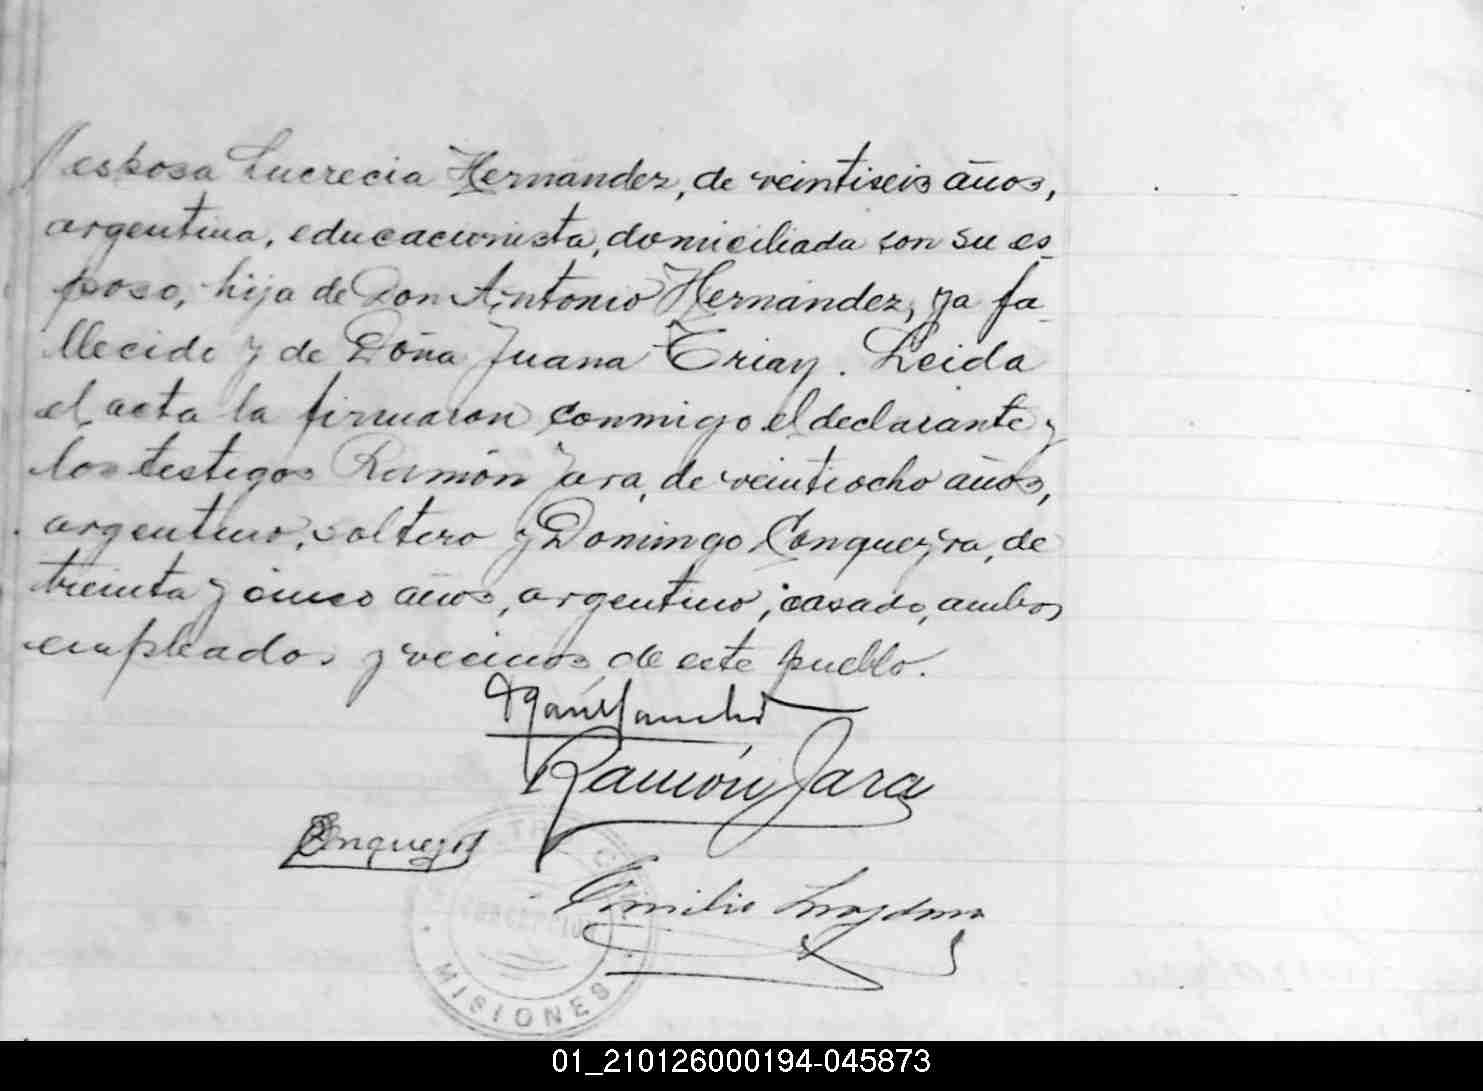 esposa Lucrecia Hernández, de veintiseis años,
argentina, educacionista, domiciliada con su es-
poso, hija de Don Antonio Hernández, ya fa-
llecido y de Doña Juana Triay. Leida
el acta la firmaron conmigo el declarante y
los testigos Ramón Jara, de veintiocho años,
argentino, soltero y Domingo Conqueyra, de
treinta y cinco años, argentino, casado, ambos
empleados y vecinos de este pueblo.
Ramón Jara
Emilio
CONCEPCIÓN
MISIONES
01_210126000194-045873